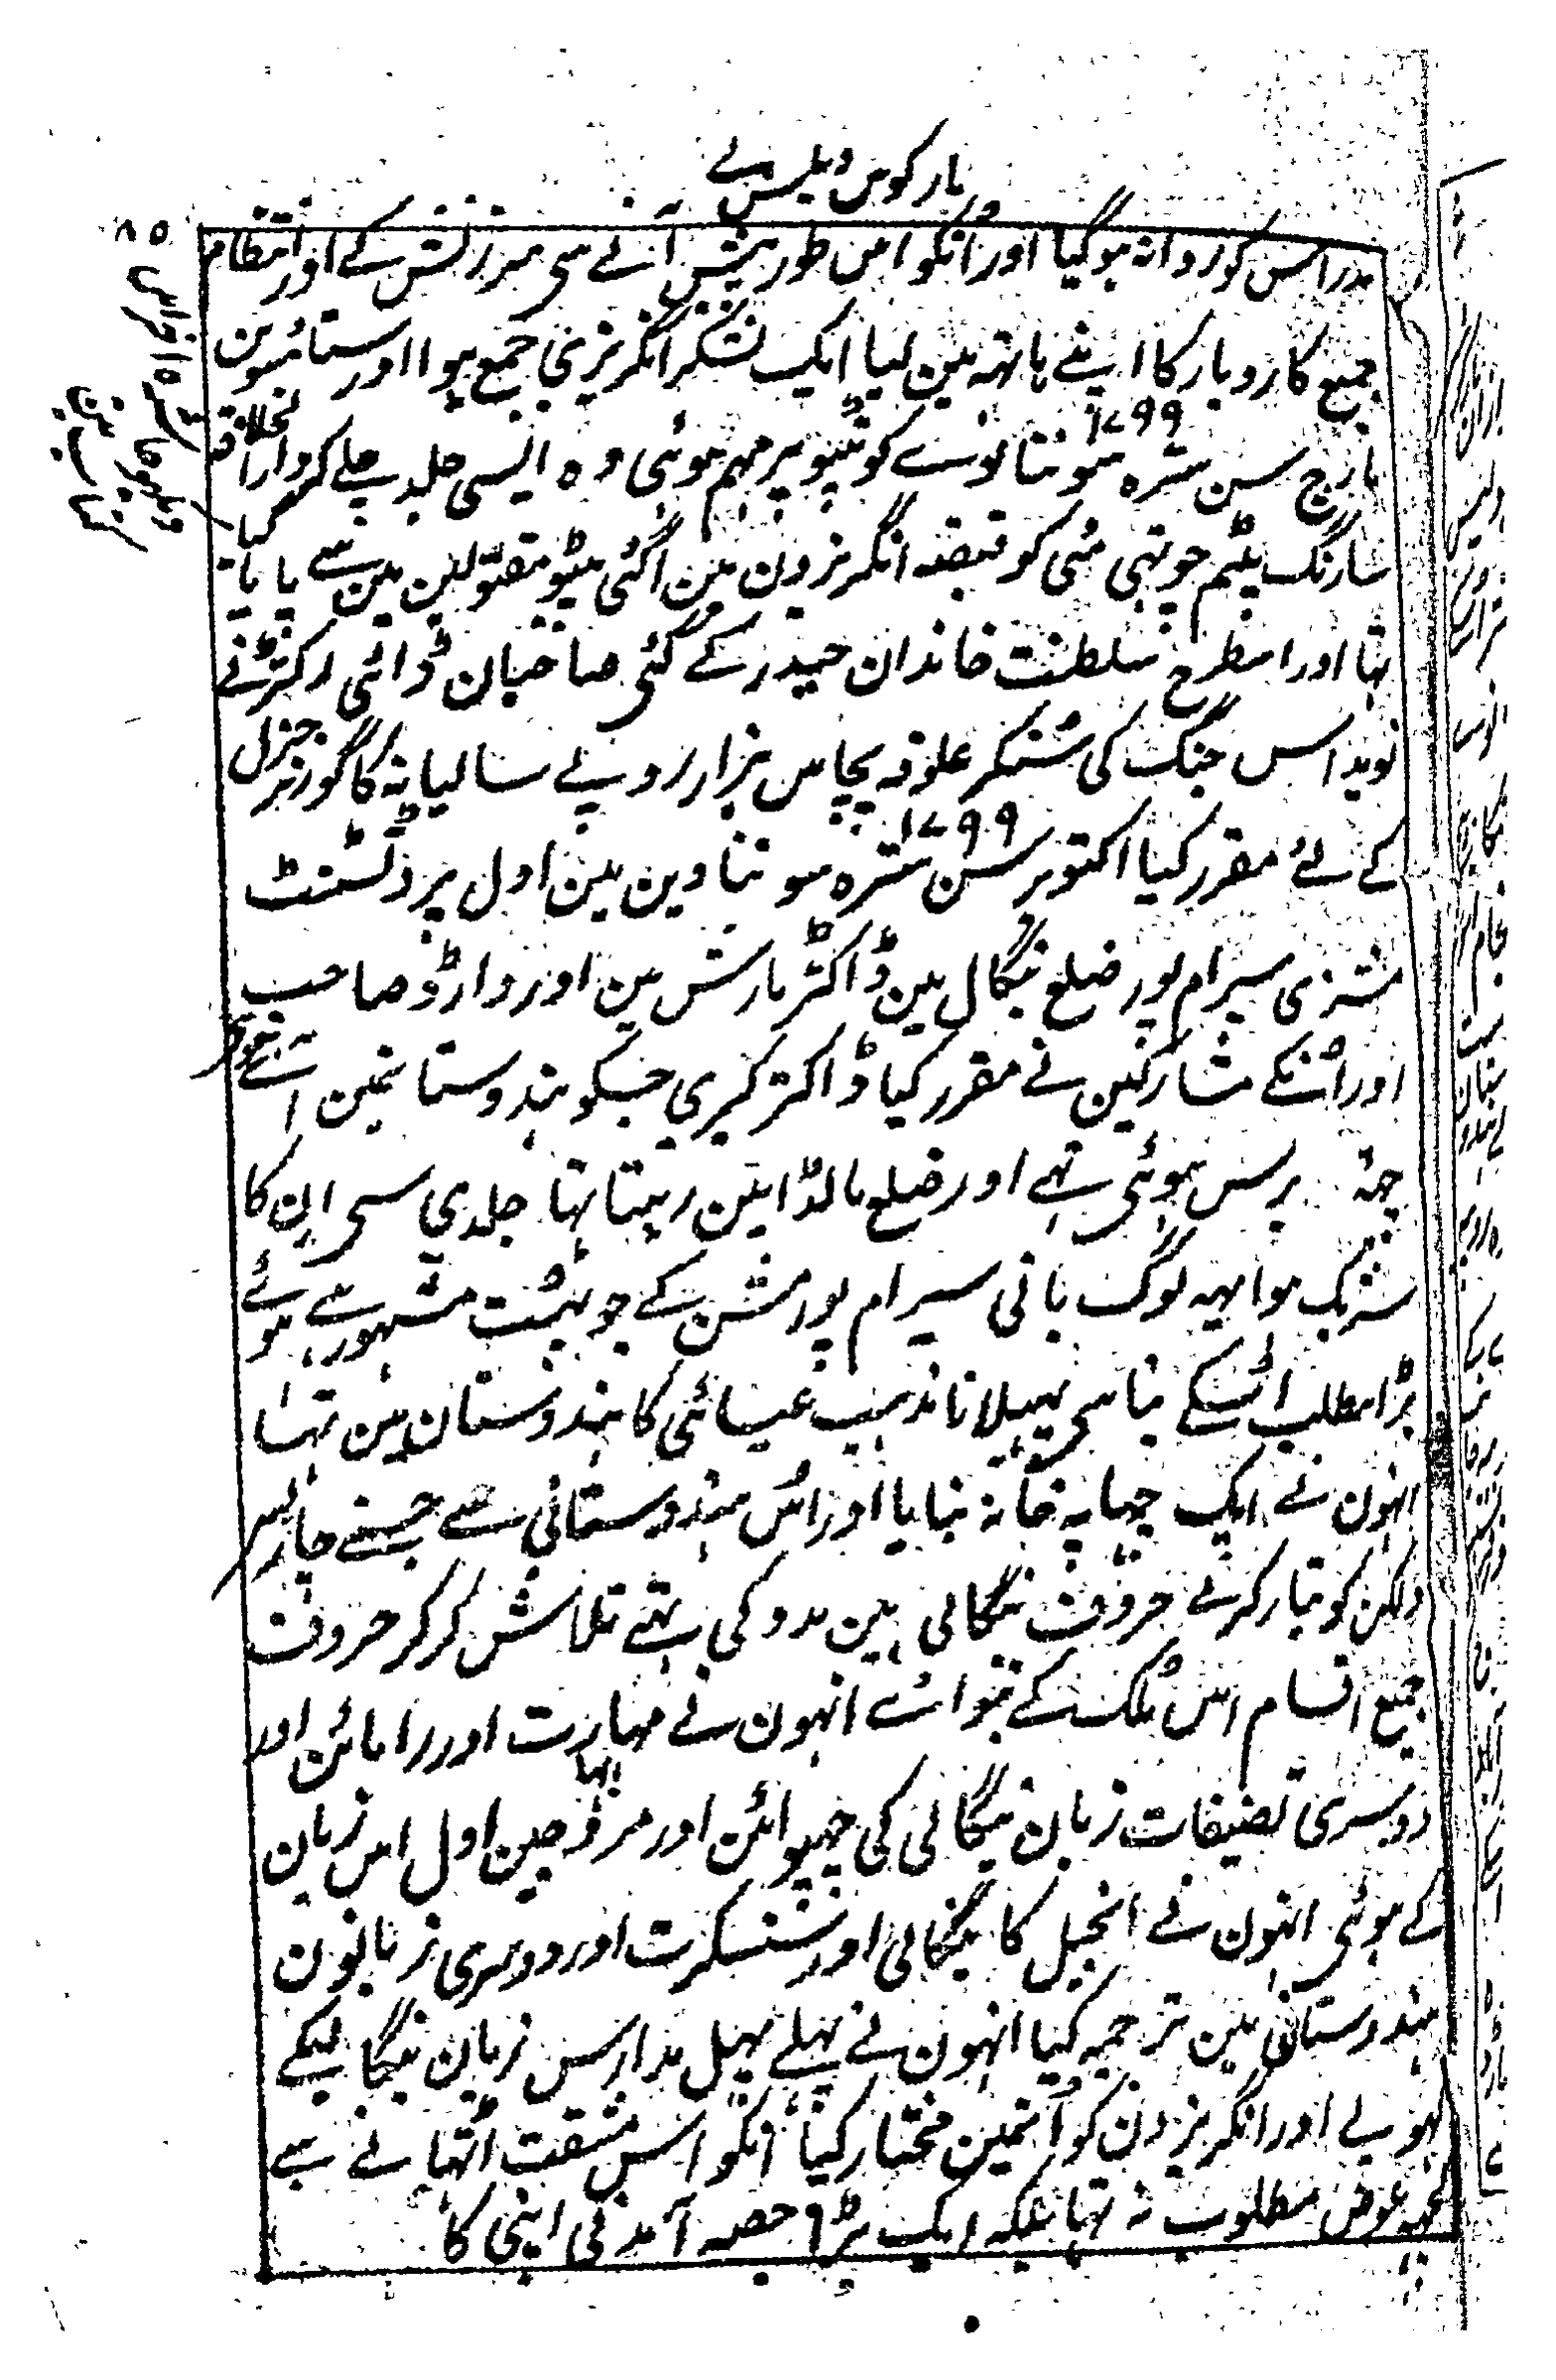 مارکوس ویلسلے
۸۵
مدراس کو روانہ ہوگیا اور انکو اس طور پیش آنے سی سرزنش کے اور انتظام
جمیع کاروبار کا اپنے ہاتہہ مین لیا ایک لشکر انگریزی جمع ہوا اور ستائیسوین
مارچ سن ۱۷۹۹ سترہ سو ننانوے کو ٹیپو پر مہم ہوئی وہ ایسی جلد چلے کہ دارالخلافہ
سارنگ پٹم چوتہی مئی کو قبضہ انگریزون مین اگئی ٹیپو مقتولین مین سے پایا گیا
تہا اور اسطرح سلطنت خاندان حیدر کے گئی صاحبان ڈائی رکٹر نے
نوید اس جنگ کی سنکر علوفہ پچاس ہزار روپیے سالیانہ کا گورنر جنرل
کے لئے مقرر کیا اکتوبر سن ۱۷۹۹ سترہ سو ننانوین مین اول پرٹسٹنٹ
مشنری سیرام پور ضلع بنگال مین ڈاکٹر مارش مین اور وارڈ صاحب
اور اُنکے مشارکین نے مقرر کیا ڈاکتر کیری جسکو ہندوستانمین اسے ہوے
چہہ برس ہوئی تہے اور ضلع مالڈا مین رہتا تہا جلدی سی ان کا
شریک ہوا یہہ لوگ بانی سیرام پور مشن کے جو بہت مشہور ہے ہوئے
بڑا مطلب اُسکے بنا سی پہیلانا مذہب عیسائی کا ہندوستان مین تہا
انہون نے ایک چہاپہ خانہ بنایا اور اُس ہندوستانی سے جسنے چارلس
ولکن کو تیار کرنے حروف بنگالی مین مدد کی تہی تلاش کر کر حروف
جمیع اقسام اس ملک کے بنوائے انہون نے مہابہارت اور رامائن اور
دوسری تصنیفات زبان بنگالی کی چہپوائن اور مروّجین اول اس زبان
کے ہوئی انہون نے انجیل کا بنگالی اور سنسکرت اور دوسری زبانون
ہندوستانی مین ترجمہ کیا انہون نے پہلے پہل مدارس زبان بنگالیکے
کہولے اور انگریزون کو اُنمین مختار کیا انکو اس مشقت اُٹہانے سے
کچہہ عوض مطلوب نہ تہا بلکہ ایک بڑا حصہ آمدنی اپنی کا